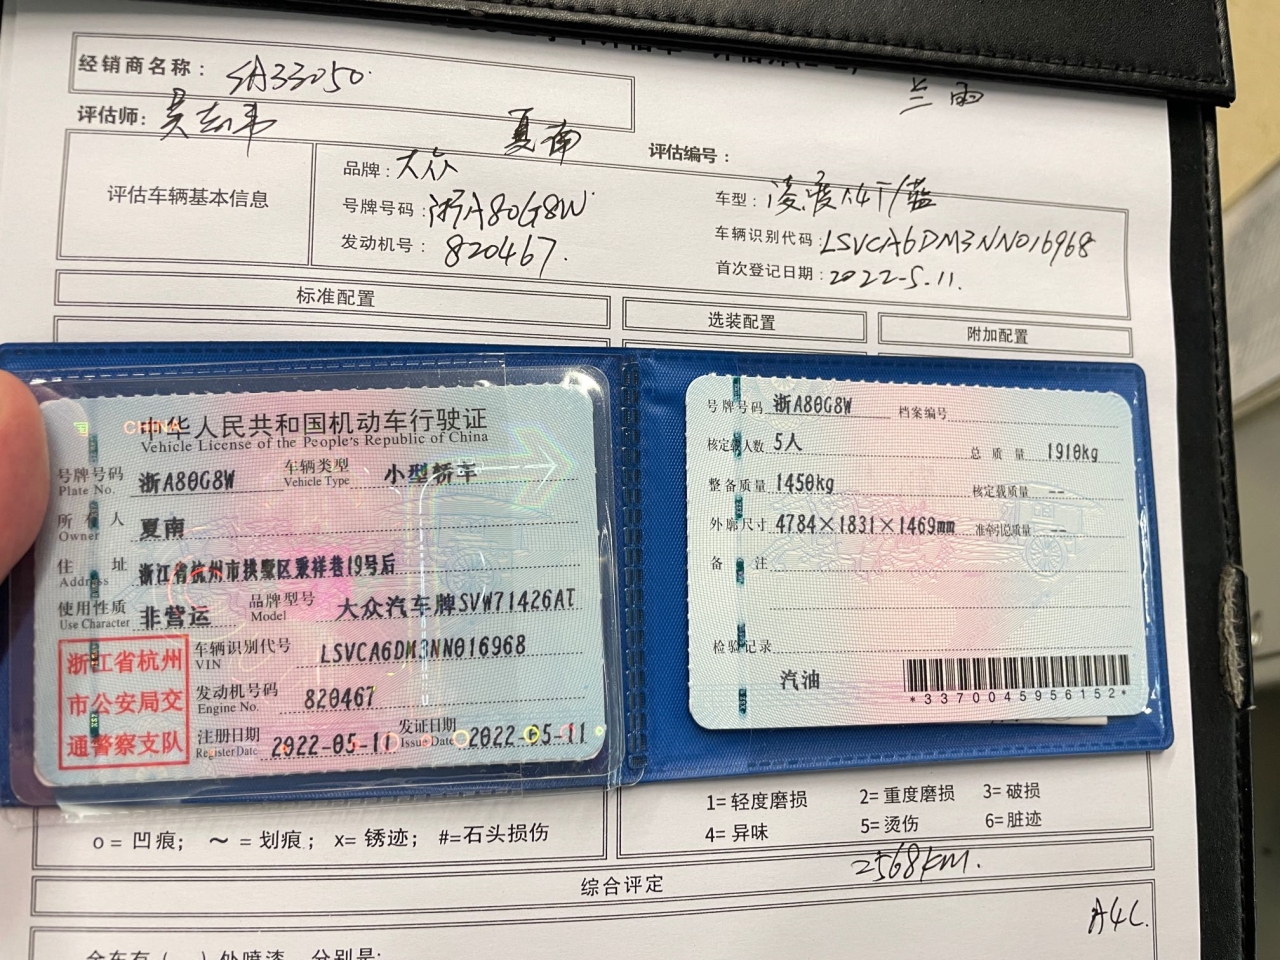 经销商名称： SA33050
兰雨
评估师：
夏南
评估编号：
评估车辆基本信息
品牌：大众
车型：凌度1.4T/蓝
号牌号码：浙A80G8W
车辆识别代码：LSVCA6DM3NN016968
发动机号：820467.
首次登记日期：2022-5.11.
标准配置
选装配置
附加配置
中华人民共和国机动车行驶证
CHINA
Vehicle License of the People's Republic of China
号牌号码 浙A80G8W 车辆类型 小型轿车
Plate No. Vehicle Type
所有人 夏南
Owner
住址 浙江省杭州市拱墅区秉祥巷19号后
Address
使用性质 非营运 品牌型号 大众汽车牌SVW71426AT
Use Character Model
浙江省杭州
市公安局交
通警察支队
车辆识别代号 LSVCA6DM3NN016968
VIN
发动机号码 820467
Engine No.
注册日期 2022-05-11 发证日期 2022-05-11
Register Date Issue Date
号牌号码 浙A80G8W 档案编号
核定载人数 5人 总质量 1910kg
整备质量 1450kg 核定载质量 --
外廓尺寸 4784×1831×1469mm 准牵引总质量 --
备注
检验记录
汽油
*3370045956152*
o= 凹痕； ～ = 划痕； x= 锈迹； #=石头损伤
1= 轻度磨损 2= 重度磨损 3= 破损
4= 异味 5= 烫伤 6= 脏迹
2568km.
综合评定
A4L.
全车有（ ）处喷漆，分别是: